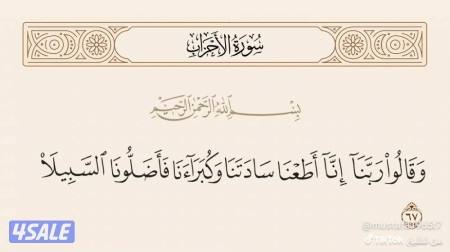 سُورَةُ الأَحْزَابِ
بِسْمِ اللَّهِ الرَّحْمَٰنِ الرَّحِيمِ
وَقَالُوا۟ رَبَّنَآ إِنَّآ أَطَعْنَا سَادَتَنَا وَكُبَرَآءَنَا فَأَضَلُّونَا ٱلسَّبِيلَا۠
٦٧
4SALE
TikTok